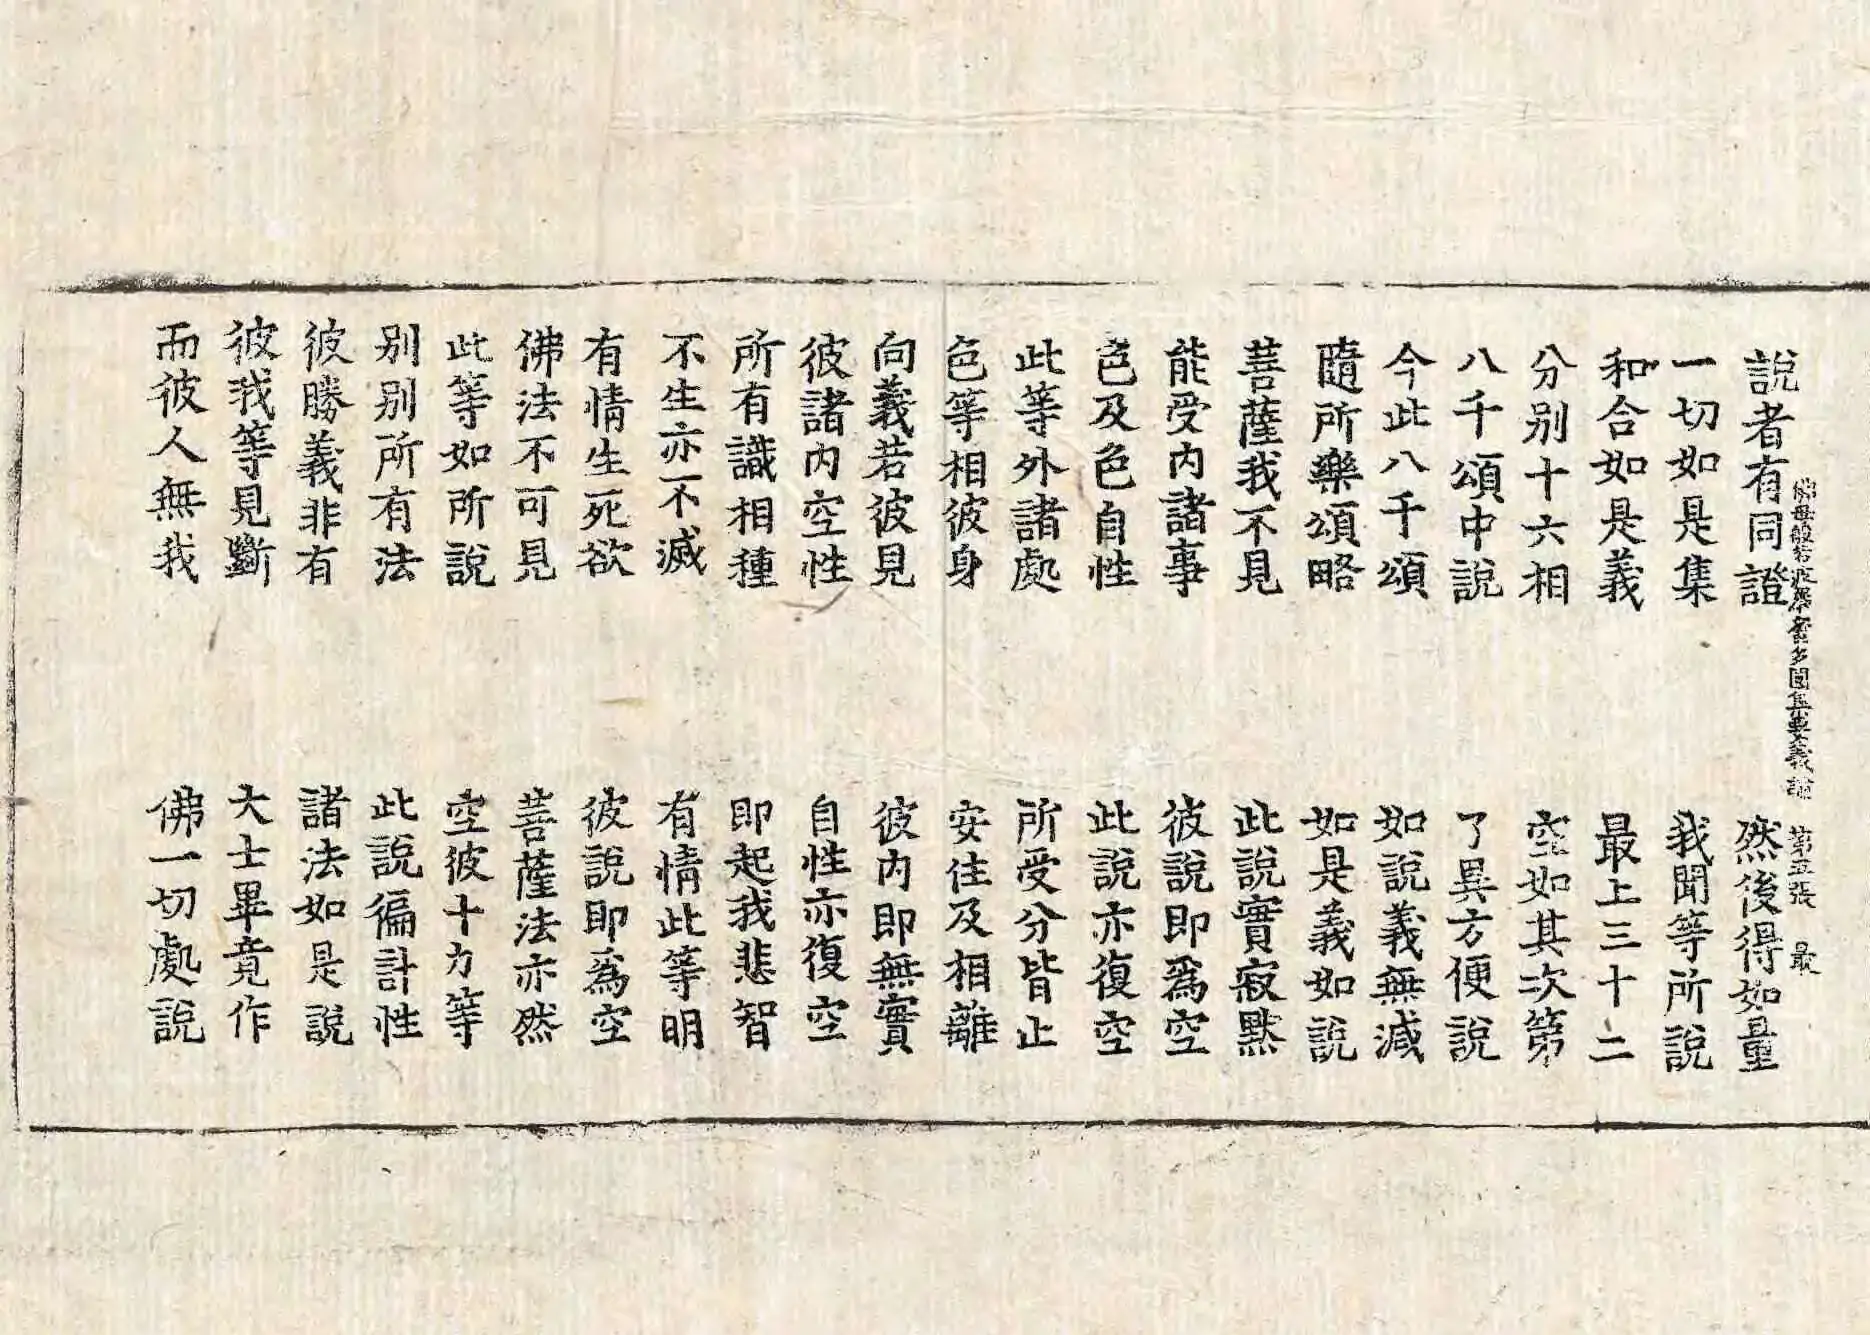 佛母般若波羅蜜多圓集要義論 第五張 最
說者有同證 然後得如量
一切如是集 我聞等所說
和合如是義 最上三十二
分別十六相 空如其次第
八千頌中說 了異方便說
今此八千頌 如說義無減
隨所樂頌略 如是義如說
菩薩我不見 此說實寂默
能受內諸事 彼說即為空
色及色自性 此說亦復空
此等外諸處 所受分皆止
色等相彼身 安住及相離
向義若彼見 彼內即無實
彼諸內空性 自性亦復空
所有識相種 即起我悲智
不生亦不滅 有情此等明
有情生死欲 彼說即為空
佛法不可見 菩薩法亦然
此等如所說 空彼十力等
別別所有法 此說徧計性
彼勝義非有 諸法如是說
彼我等見斷 大士畢竟作
而彼人無我 佛一切處說